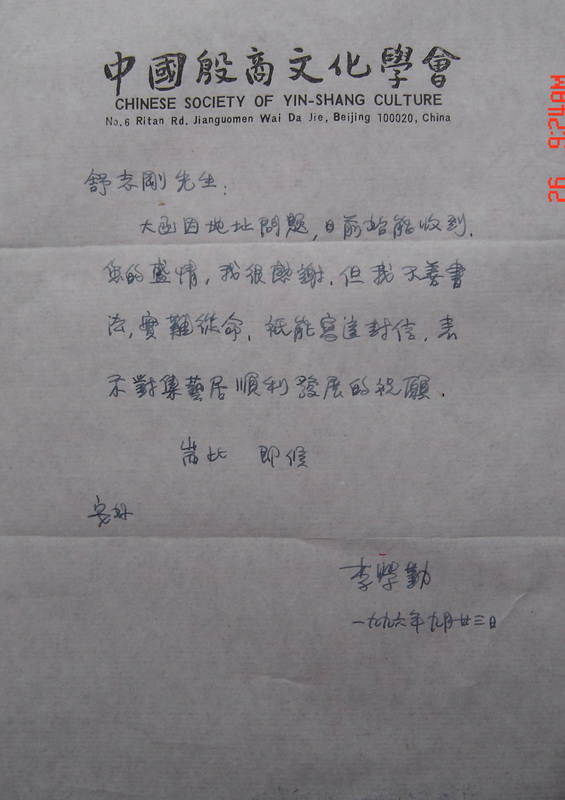 中國殷商文化學會
CHINESE SOCIETY OF YIN-SHANG CULTURE
No.6 Ritan Rd. Jianguomen Wai Da Jie, Beijing 100020, China
舒孝剛先生:
大函因地址問題,日前始能收到.
您的盛情,我很感謝.但我不善書
法,實難從命.祇能寫這封信,表
示對集藝居順利發展的祝願.
耑此 即候
安好
李學勤
一九九六年九月廿三日